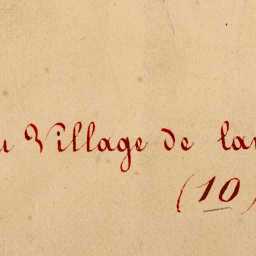 u Village de la
(10)